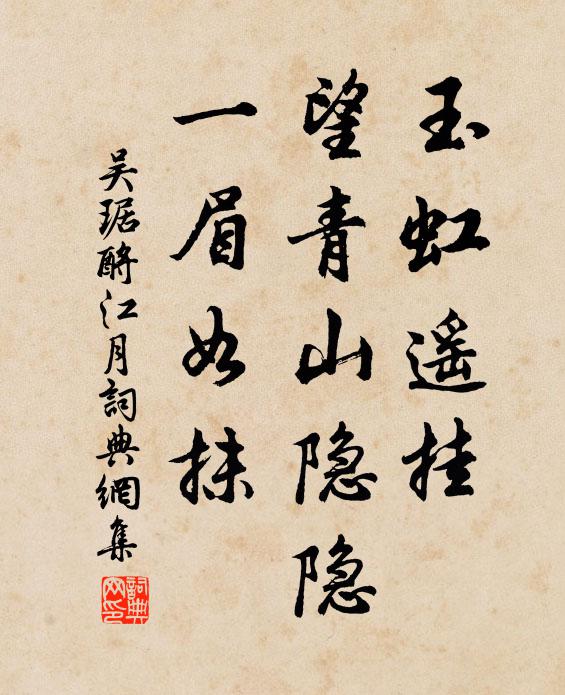 玉虹遥挂
望青山隐隐
一眉如抹
吴琚酹江月詞典網集
詞典網印